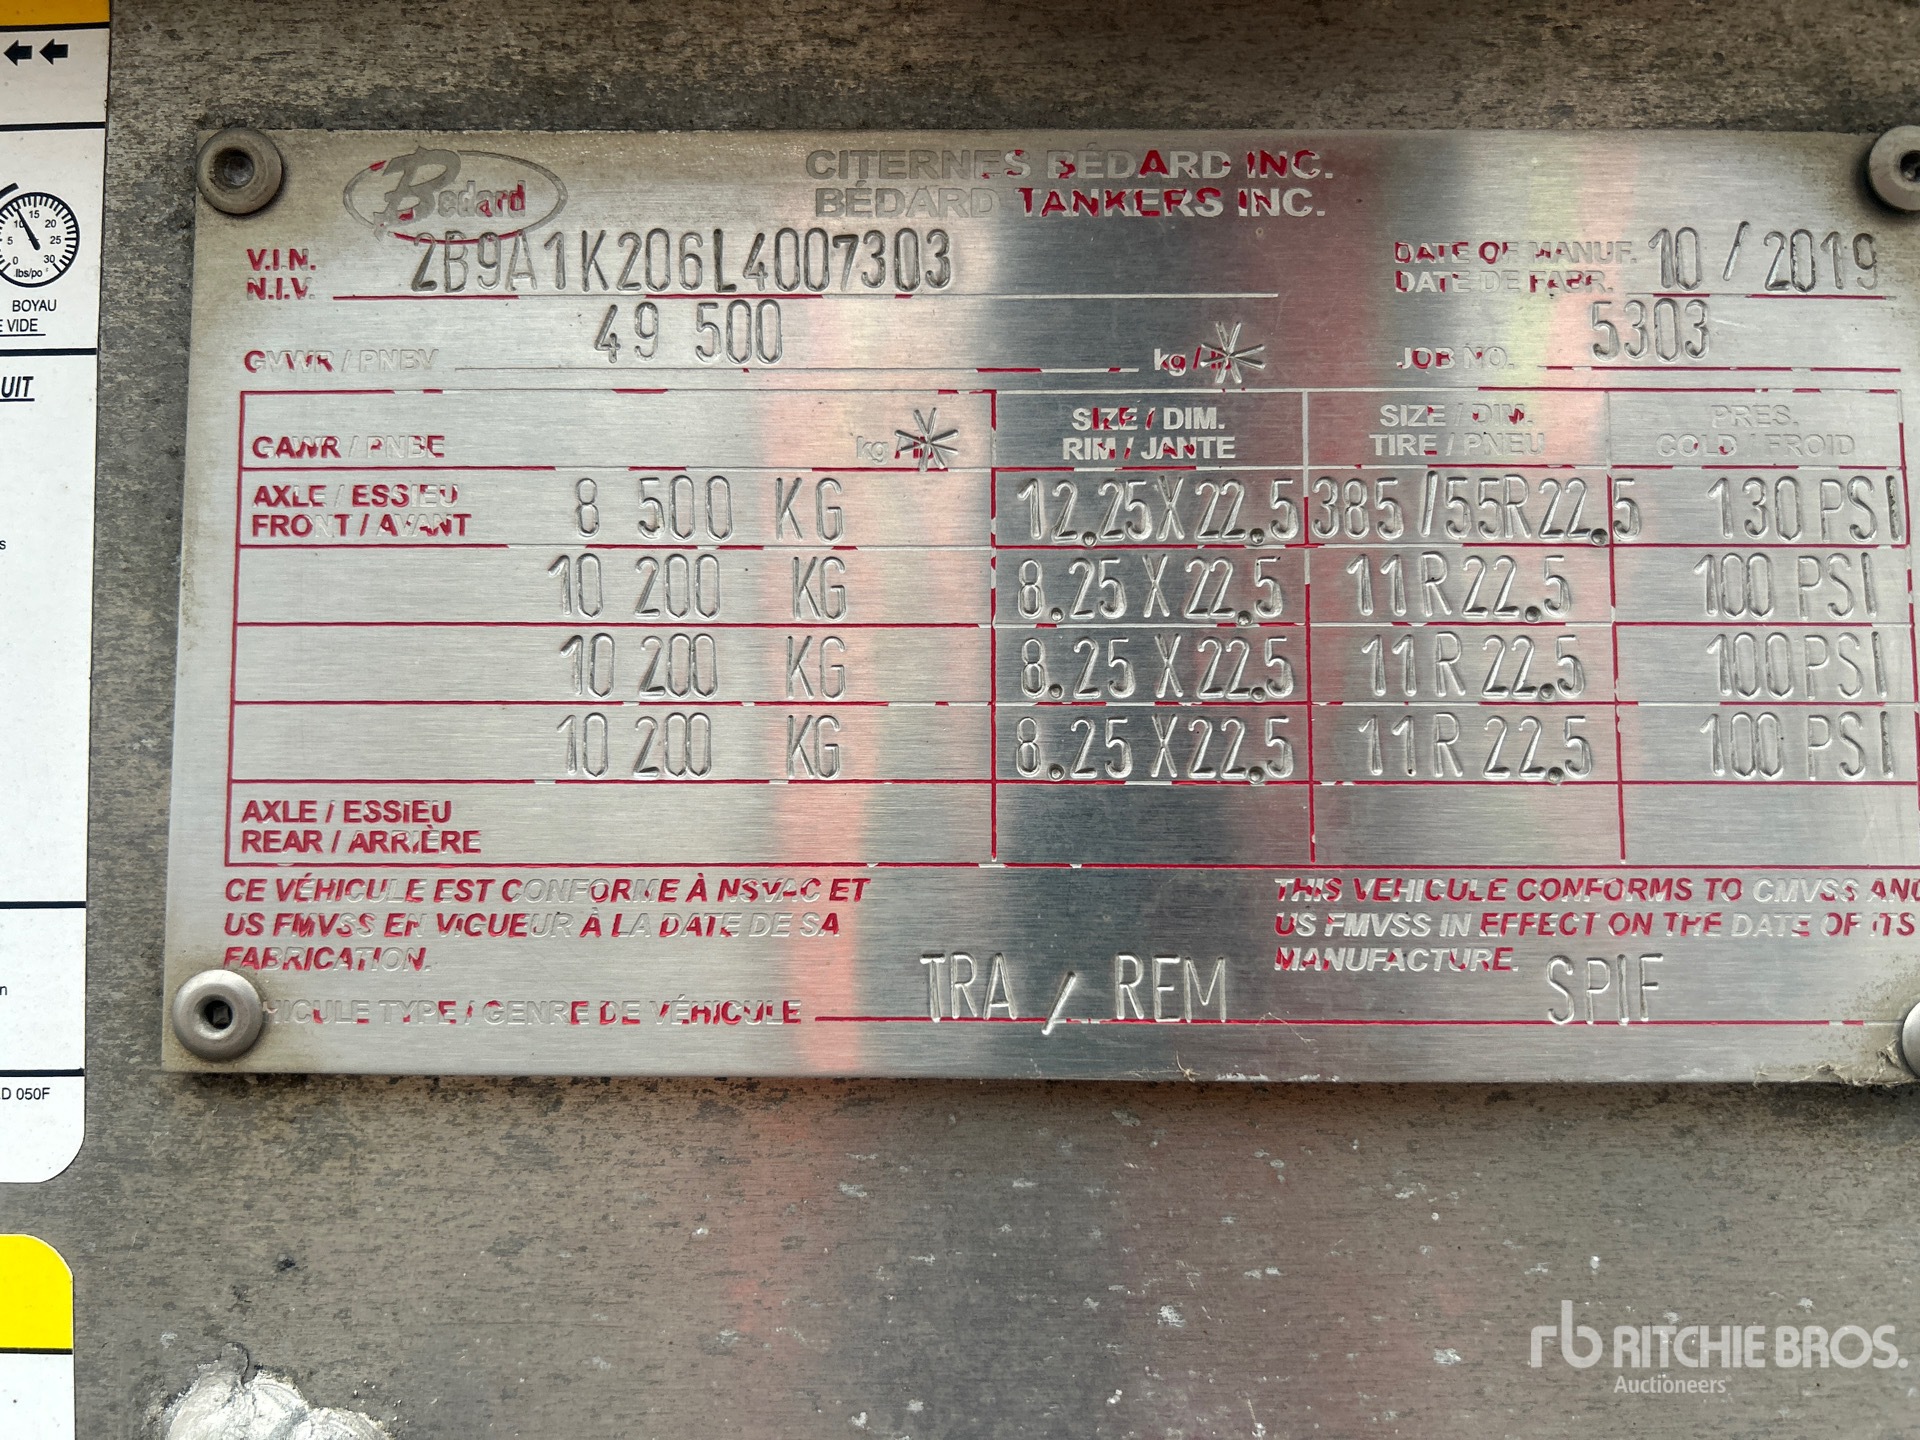 15
10 20
5 25
0 30
lbs/po²
BOYAU
E VIDE
UIT
s
n
D 050F
Bedard
CITERNES BÉDARD INC.
BÉDARD TANKERS INC.
V.I.N. 2B9A1K206L4007303
N.I.V.
DATE OF MANUF. 10/2019
DATE DE FABR.
GVWR / PNBV 49 500 kg /
JOB NO. 5303
GAWR / PNBE kg /
SIZE / DIM.
RIM / JANTE
SIZE / DIM.
TIRE / PNEU
PRES.
COLD / FROID
AXLE / ESSIEU
FRONT / AVANT
8 500 KG 12.25X22.5 385/55R22.5 130 PSI
10 200 KG 8.25X22.5 11R22.5 100 PSI
10 200 KG 8.25X22.5 11R22.5 100 PSI
10 200 KG 8.25X22.5 11R22.5 100 PSI
AXLE / ESSIEU
REAR / ARRIÈRE
CE VÉHICULE EST CONFORME À NSVAC ET
US FMVSS EN VIGUEUR À LA DATE DE SA
FABRICATION.
THIS VEHICULE CONFORMS TO CMVSS AND
US FMVSS IN EFFECT ON THE DATE OF ITS
MANUFACTURE.
HICULE TYPE / GENRE DE VÉHICULE TRA / REM SPIF
rb RITCHIE BROS.
Auctioneers